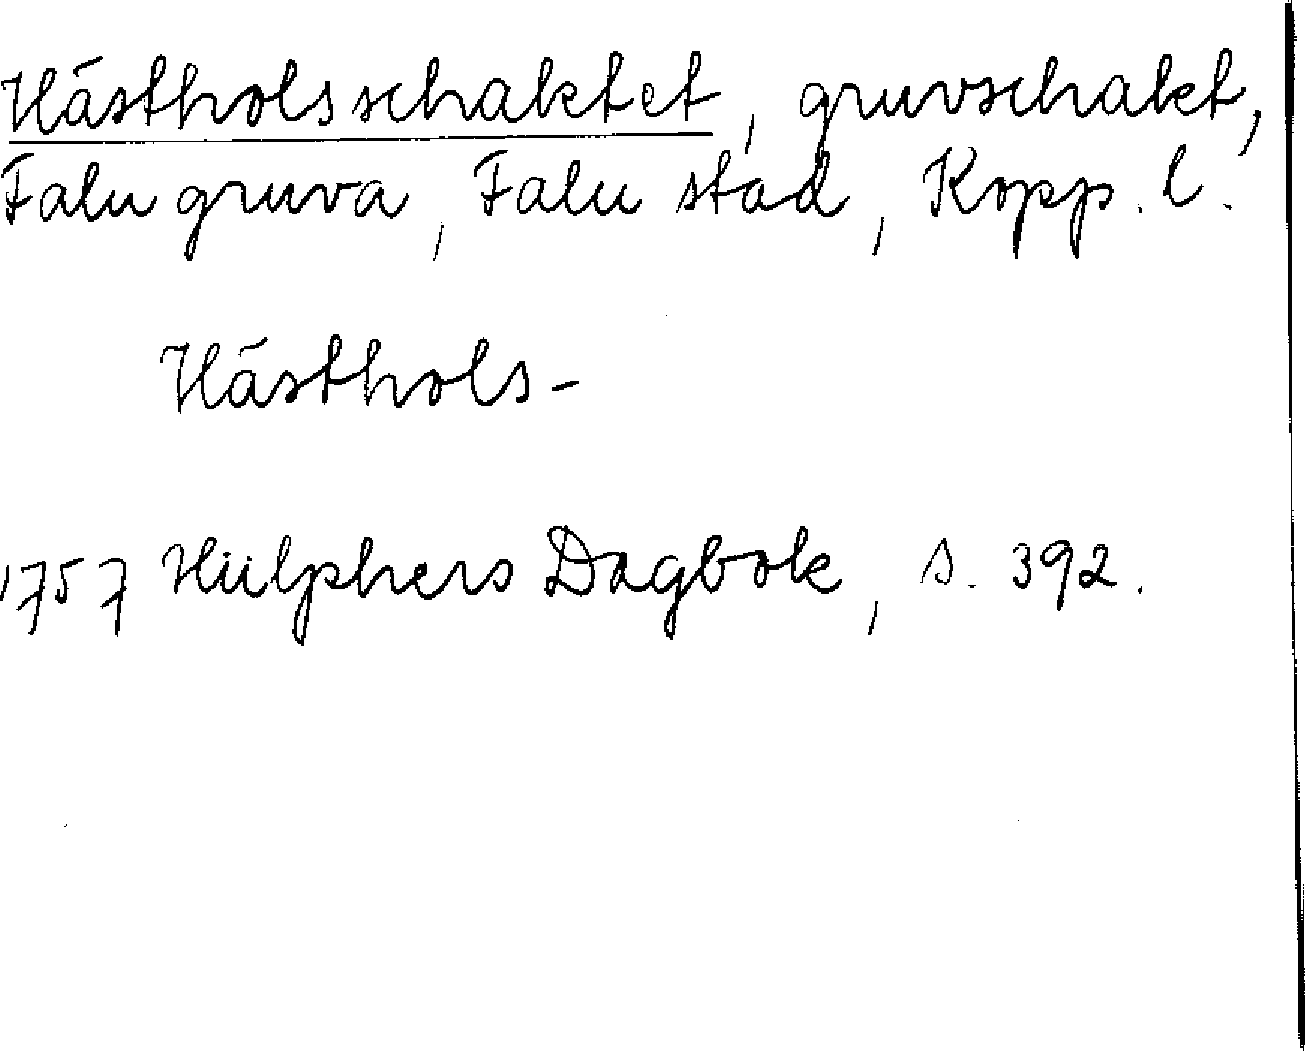 Hästholsschaktet, gruvschakt,
Falu gruva, Falu stad, Kopp. l.
Hästhols-
1757 Hülphers Dagbok, s. 392.